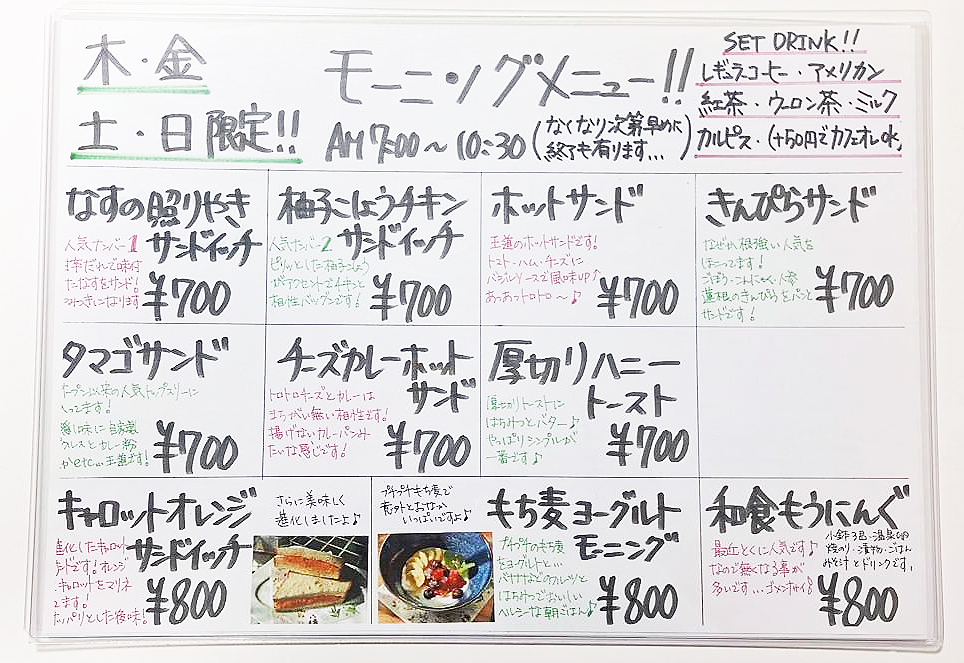 木・金
土・日限定!!
モーニングメニュー!!
AM 7:00～10:30
(なくなり次第早めに
終了も有ります...)
SET DRINK!!
レギュラーコーヒー・アメリカン
紅茶・ウーロン茶・ミルク
カルピス・(+50円でカフェオレok)
なすの照りやき
サンドイッチ
人気ナンバー1
たなすをサンド!
¥700
柚子こしょうチキン
サンドイッチ
人気ナンバー2
ピリッとした柚子こしょう
がアクセントでチキンと
相性バツグンです!
¥700
ホットサンド
王道のホットサンドです!
トマト・ハム・チーズに
バジルソースで風味UP↑
あっあっトロトロ～♪
¥700
きんぴらサンド
なぜか根強い人気を
ほこってます!
ごぼう・こんにゃく・人参
蓮根のきんぴらをパンと
サンドです!
¥700
タマゴサンド
オープン以来の人気トップスリーに
入ってます!
隠し味に自家製
ピクルスとカレー粉
かetc...王道です!
¥700
チーズカレーホット
サンド
トロトロチーズとカレーは
まちがい無い相性です!
揚げないカレーパンみ
たいな感じです!
¥700
厚切りハニー
トースト
厚切りトーストに
はちみつとバター♪
やっぱりシンプルが
一番です♪
¥700
キャロットオレンジ
サンドイッチ
進化したキャロット
サンドです!オレンジ
キャロットをマリネ
てます!
サッパリとした後味!
¥800
さらに美味しく
進化しましたよ♪
プチプチもち麦で
意外とおなか
いっぱいですよ♪
もち麦ヨーグルト
モーニング
プチプチのもち麦
とヨーグルトと...
バナナなどのフルーツと
はちみつでおいしい
ヘルシーな朝ごはん♪
¥800
和食もうにんぐ
小鉢3品・温泉卵
焼のり・漬物・ごはん
みそ汁とドリンクです。
最近とくに人気です♪
なので無くなる事が
多いです...ゴメンナサイ♪
¥800